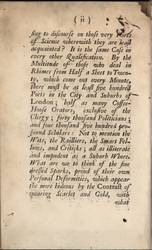 ( ii )
ing to discourse on those very Parts
of Science wherewith they are least
acquainted? It is the same Case in
every other Qualification. By the
Multitude of those who deal in
Rhimes from Half a Sheet to Twen-
ty, which come out every Minute,
There must be at least five hundred
Poets in the City and Suburbs of
London; half as many Coffee-
House Orators, exclusive of the
Clergy; forty thousand Politicians;
and four thousand five hundred pro-
found Scholars: Not to mention the
Wits, the Railliers, the Smart Fel-
lows, and Criticks; all as illiterate
and impudent as a Suburb Whore.
What are we to think of the fine
dressed Sparks, proud of their own
Personal Deformities, which appear
the more hideous by the Contrast of
wearing Scarlet and Gold, with
what